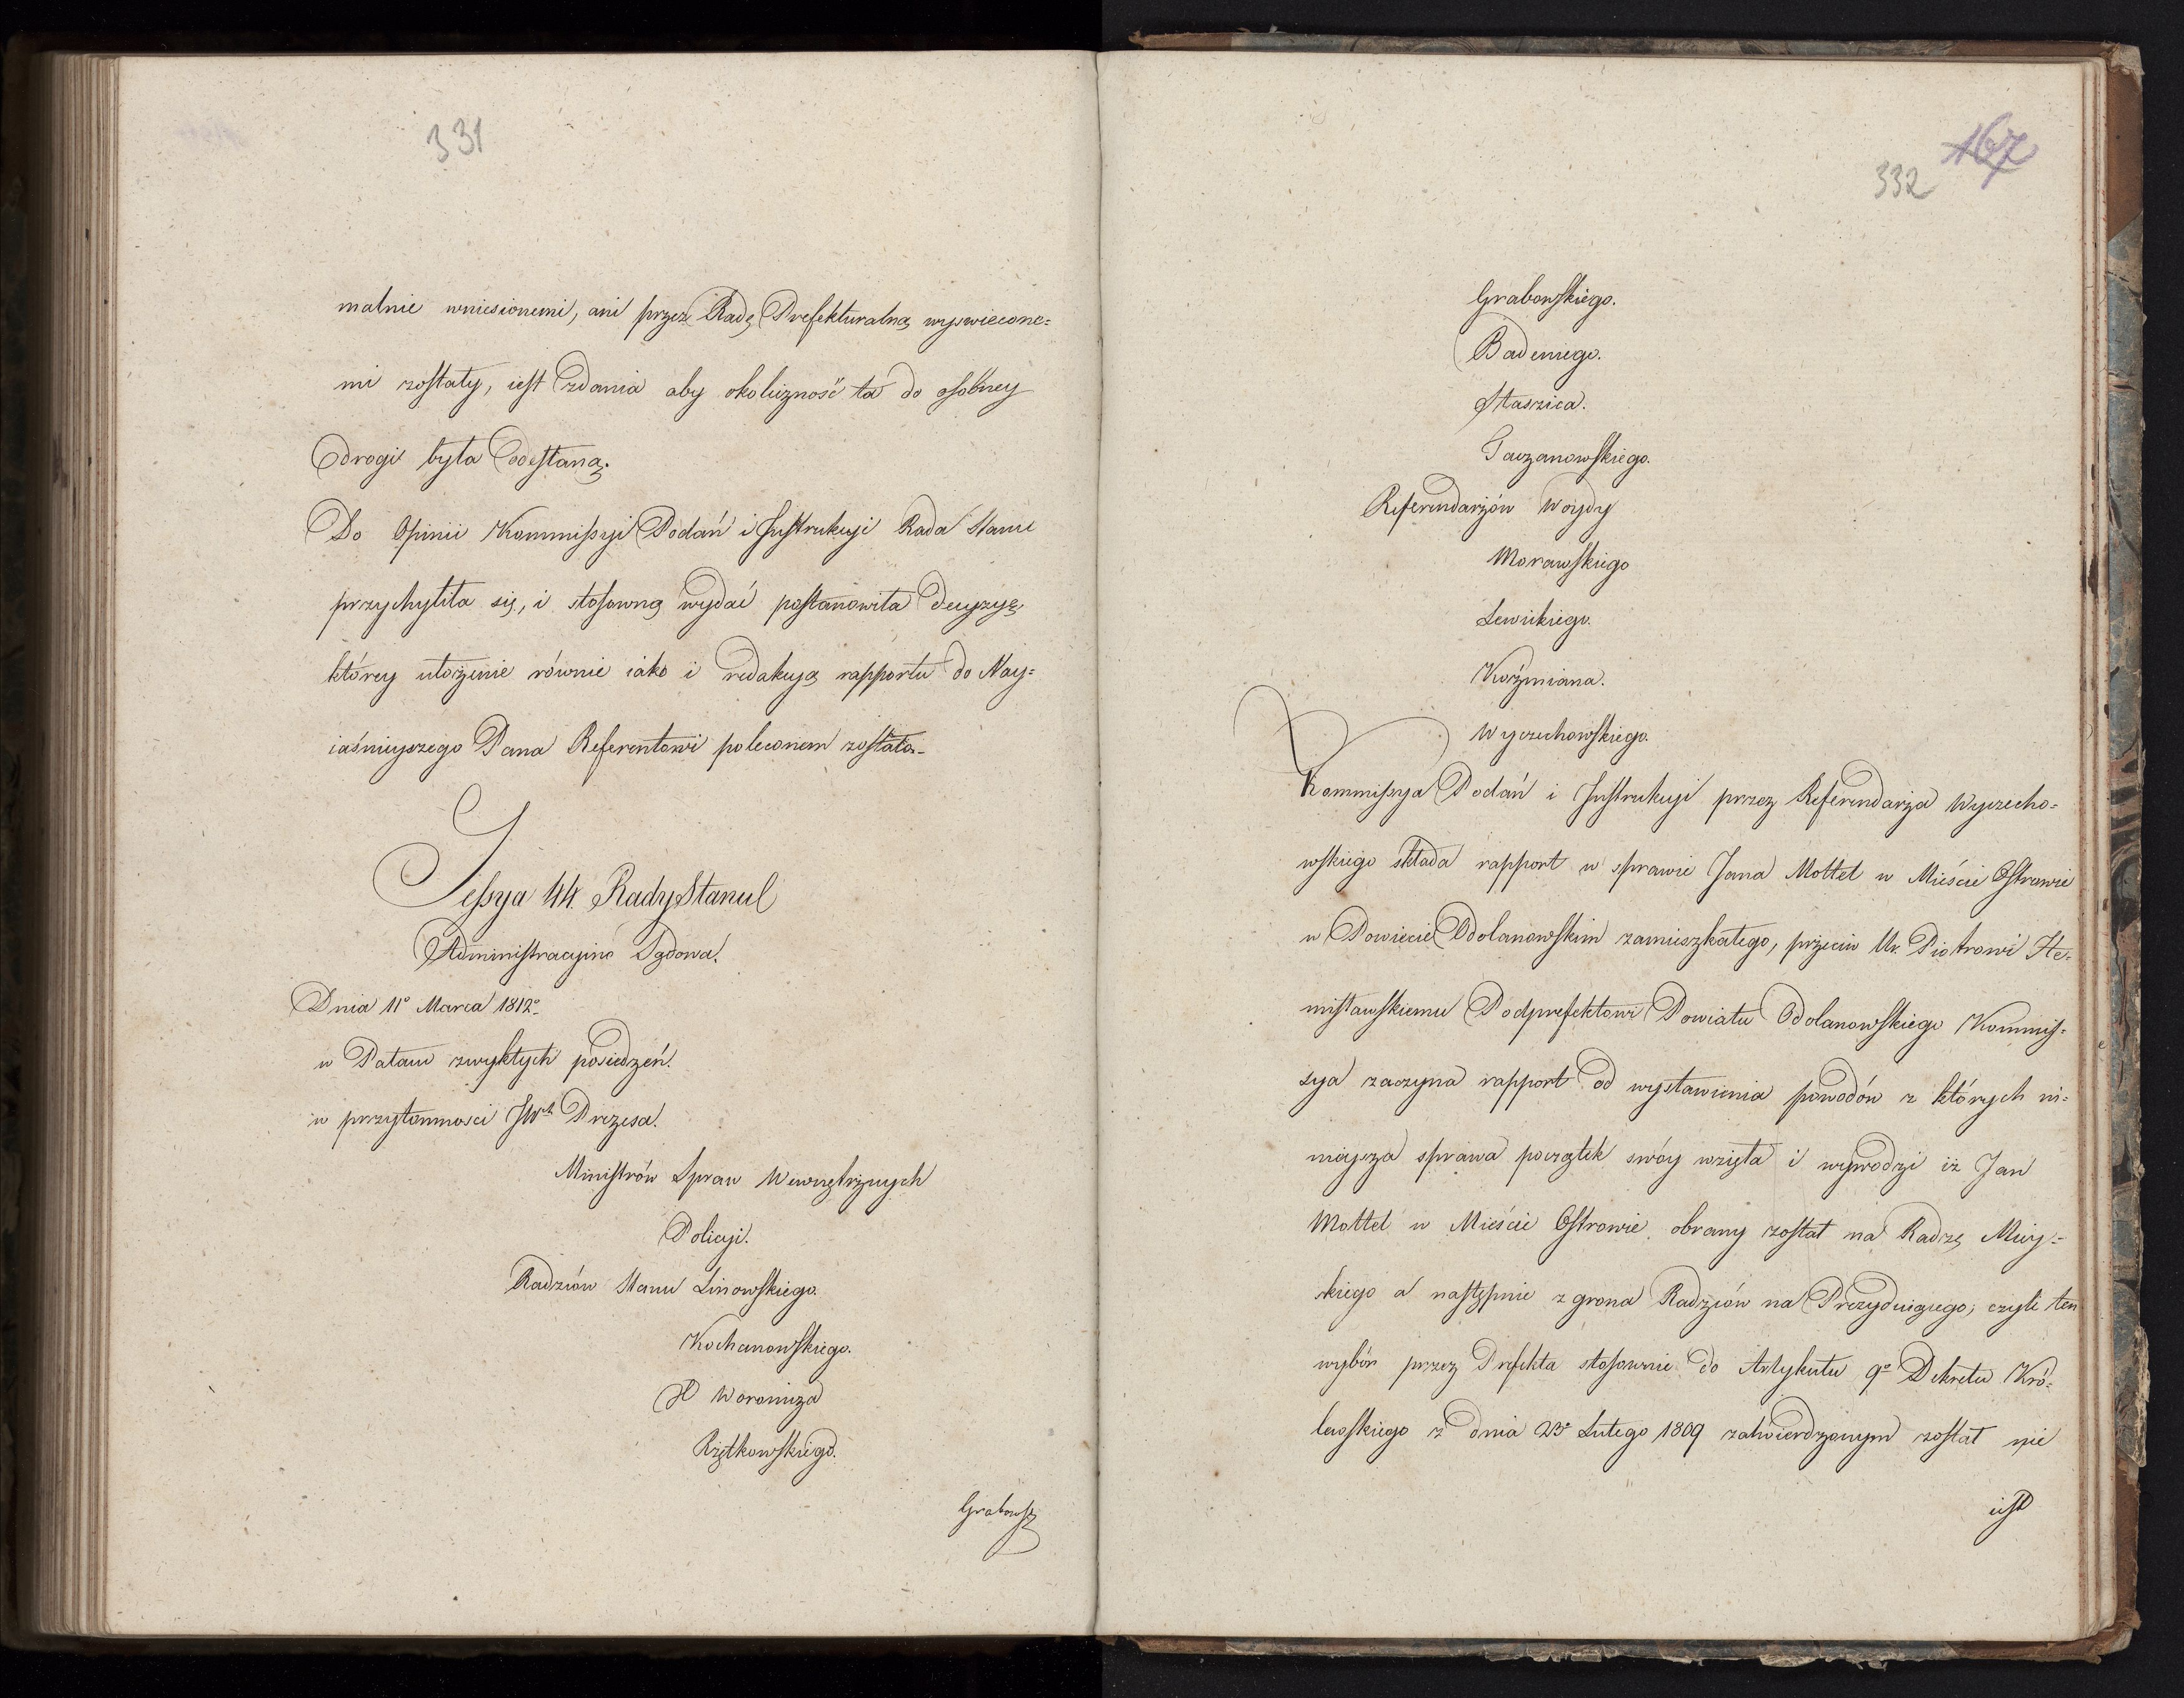 331
malnie wniesionemi, ani przez Radę Prefekturalną wyswiecone=
mi zostały, iest zdania aby okoliczność ta do osobney
drogi była odesłaną.
Do Opinii Kommissyi Podań i Instrukcyi Rada Stanu
przychyliła się, i stosowną wydać postanowiła decyzyę
którey ułożenie równie iako i redakcyą rapportu do Nay=
iaśnieyszego Pana Referentowi poleconem zostało.
Sessya 44. Rady Stanu
Administracyino Sądowa.
Dnia 11º Marca 1812º
w Pałacu zwykłych posiedzeń.
w przytomnosci JWº Prezesa.
Ministrów Spraw Wewnętrznych
Policyi.
Radzców Stanu Linowskiego.
Kochanowskiego.
X Woronicza
Rzętkowskiego.
Grabows
167
332
Grabowskiego.
Badeniego.
Staszica.
Taczanowskiego.
Referendarzów Woydy
Morawskiego
Lewickiego.
Koźmiana.
Wyczechowskiego.
Kommissya Podań i Instrukcyi przez Referendarza Wyczecho=
wskiego składa rapport w sprawie Jana Mottel w Mieście Ostrowie
w Powiecie Odolanowskim zamieszkałego, przeciw Ur. Piotrowi Ste=
misławskiemu Podprefektowi Powiatu Odolanowskiego Kommis=
sya zaczyna rapport od wystawienia powodów z których ni=
nieysza sprawa początek swóy wzięła i wywodzi iż Jan
Mottel w Mieście Ostrowie obrany został na Radzę Miey=
skiego a następnie z grona Radzców na Prezyduiącego, czyli ten
wybór przez Prefekta stosownie do Artykułu 9º Dekretu Kró=
lewskiego z dnia 23º Lutego 1809 zatwierdzonym został nie
iest